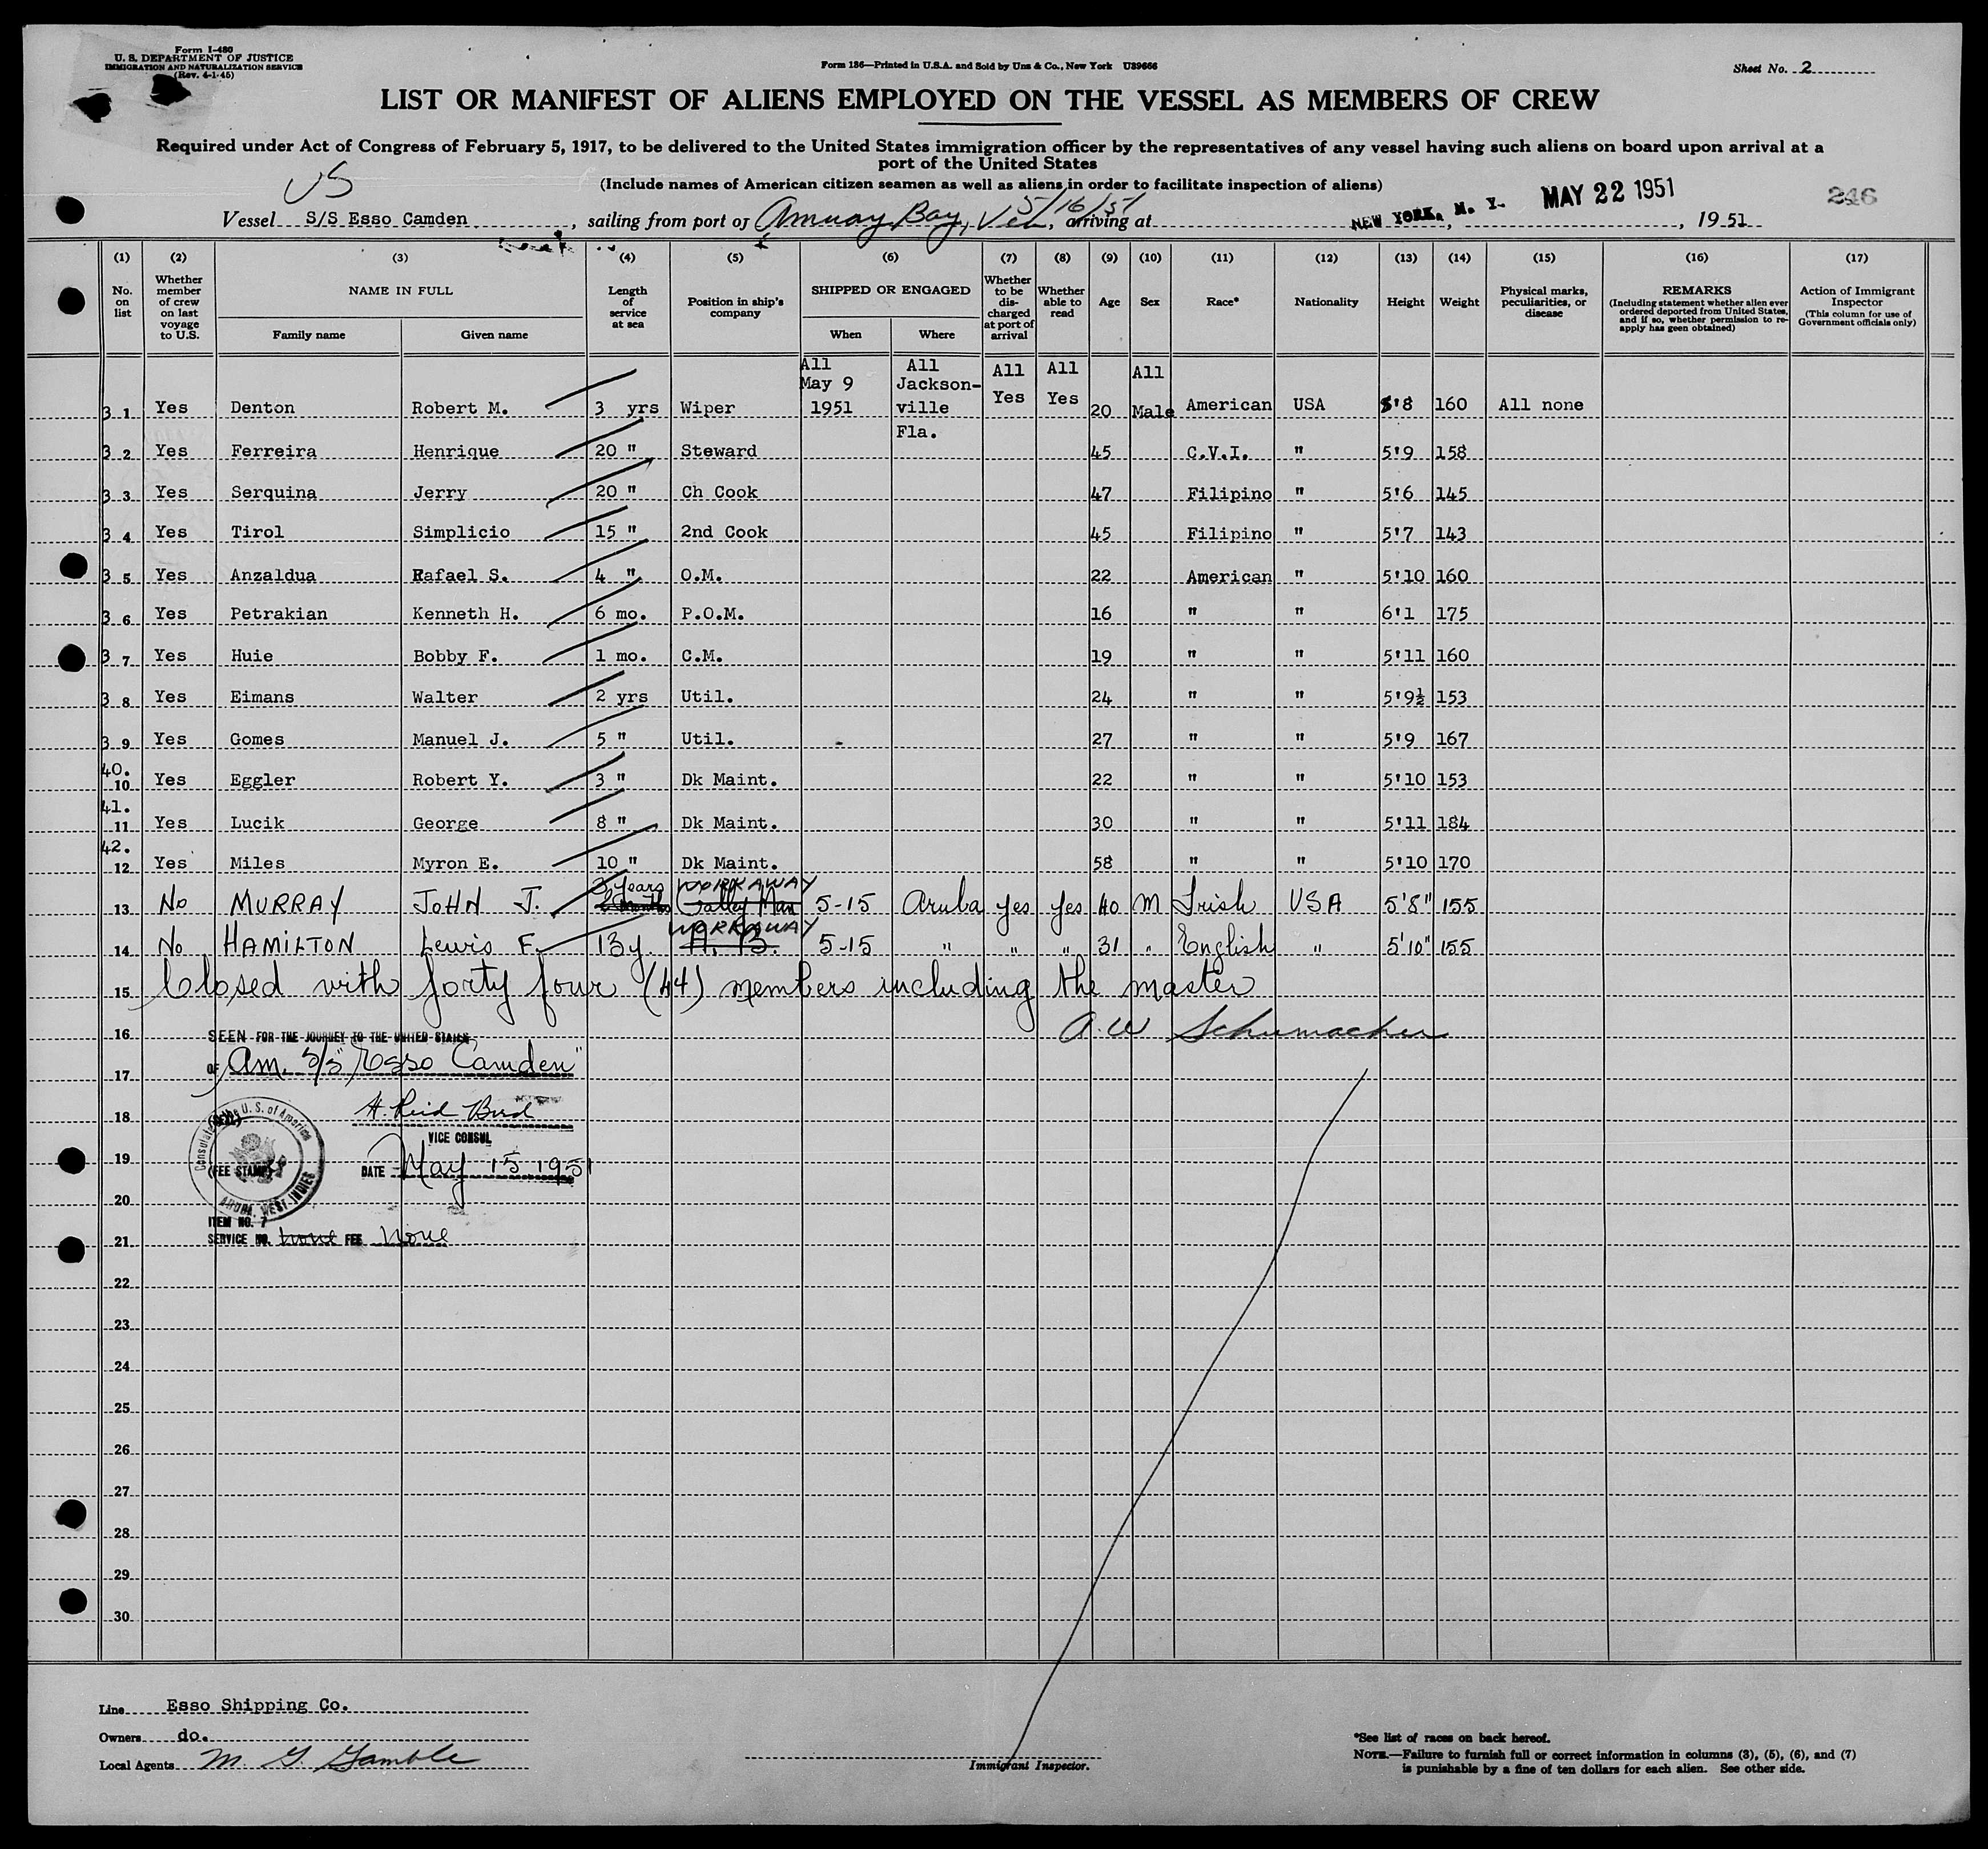 Form I-480
U. S. DEPARTMENT OF JUSTICE
IMMIGRATION AND NATURALIZATION SERVICE
(Rev. 4-1-45)
Form 186—Printed in U.S.A. and Sold by Unz & Co., New York U89666
Sheet No. 2
LIST OR MANIFEST OF ALIENS EMPLOYED ON THE VESSEL AS MEMBERS OF CREW
Required under Act of Congress of February 5, 1917, to be delivered to the United States immigration officer by the representatives of any vessel having such aliens on board upon arrival at a
port of the United States
(Include names of American citizen seamen as well as aliens in order to facilitate inspection of aliens)
US
Vessel S/S Esso Camden, sailing from port of Amuay Bay, Ven, 5/16/51 arriving at NEW YORK, N. Y. MAY 22 1951, 1951
246
(1) (2) (3) (4) (5) (6) (7) (8) (9) (10) (11) (12) (13) (14) (15) (16) (17)
No. on list
Whether member of crew on last voyage to U.S.
NAME IN FULL
Family name Given name
Length of service at sea
Position in ship's company
SHIPPED OR ENGAGED
When Where
Whether to be discharged at port of arrival
Whether able to read
Age Sex Race* Nationality Height Weight
Physical marks, peculiarities, or disease
REMARKS
(Including statement whether alien ever ordered deported from United States, and if so, whether permission to re-apply has geen obtained)
Action of Immigrant Inspector
(This column for use of Government officials only)
3 1 Yes Denton Robert M. 3 yrs Wiper All May 9 1951 All Jackson-ville Fla. All Yes All Yes 20 All Male American USA 5'8 160 All none
3 2 Yes Ferreira Henrique 20 " Steward 45 C.V.I. " 5'9 158
3 3 Yes Serquina Jerry 20 " Ch Cook 47 Filipino " 5'6 145
3 4 Yes Tirol Simplicio 15 " 2nd Cook 45 Filipino " 5'7 143
3 5 Yes Anzaldua Rafael S. 4 " O.M. 22 American " 5'10 160
3 6 Yes Petrakian Kenneth H. 6 mo. P.O.M. 16 " " 6'1 175
3 7 Yes Huie Bobby F. 1 mo. C.M. 19 " " 5'11 160
3 8 Yes Eimans Walter 2 yrs Util. 24 " " 5'9½ 153
3 9 Yes Gomes Manuel J. 5 " Util. 27 " " 5'9 167
40. 10 Yes Eggler Robert Y. 3 " Dk Maint. 22 " " 5'10 153
41. 11 Yes Lucik George 8 " Dk Maint. 30 " " 5'11 184
42. 12 Yes Miles Myron E. 10 " Dk Maint. 58 " " 5'10 170
13 No MURRAY JOHN J. 3 years 2 Months WORKAWAY Galley Man 5-15 Aruba yes yes 40 M Irish USA 5'8" 155
14 No HAMILTON Lewis F. 13y. WORKAWAY A. B. 5-15 " " " 31 " English " 5'10" 155
15 Closed with forty four (44) members including the master
16 A. W Schumacher
SEEN FOR THE JOURNEY TO THE UNITED STATES
OF Am. S/S "Esso Camden"
17
18
(SEAL)
H. Reid Bird
VICE CONSUL
Consulate of the U. S. of America
ARUBA, WEST INDIES
19
(FEE STAMP)
DATE May 15 1951
20
ITEM NO. 7
21
SERVICE NO. none FEE None
22
23
24
25
26
27
28
29
30
Line Esso Shipping Co.
Owners do.
Local Agents M. G. Gamble
Immigrant Inspector.
*See list of races on back hereof.
NOTE.—Failure to furnish full or correct information in columns (3), (5), (6), and (7)
is punishable by a fine of ten dollars for each alien. See other side.